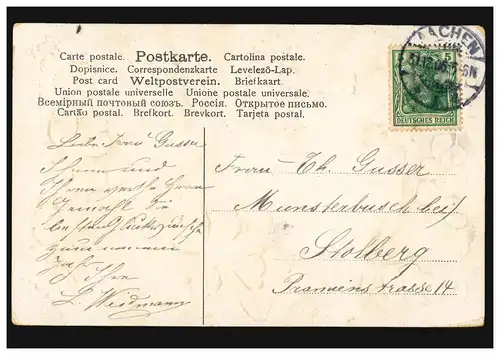 Carte postale. Postkarte. Cartolina postale.
Dopisnice. Correspondenzkarte. Levelező-Lap.
Post card Weltpostverein. Briefkaart.
Union postale universelle Unione postale universale.
Всемірный почтовый союзъ. Россія. Открытое письмо.
Cartão postal. Brefkort. Brevkort. Tarjeta postal.
AACHEN
5 5
DEUTSCHES REICH
Liebe Frau Gusser
Ihnen und
Ihrem werthe Herrn
Gemahl die
besten Glückwünsche
zum neuen
Jahr Ihre
L. Weidmann
Frau Th. Gusser
Munsterbusch bei
Stolberg
Prämienstrasse 14